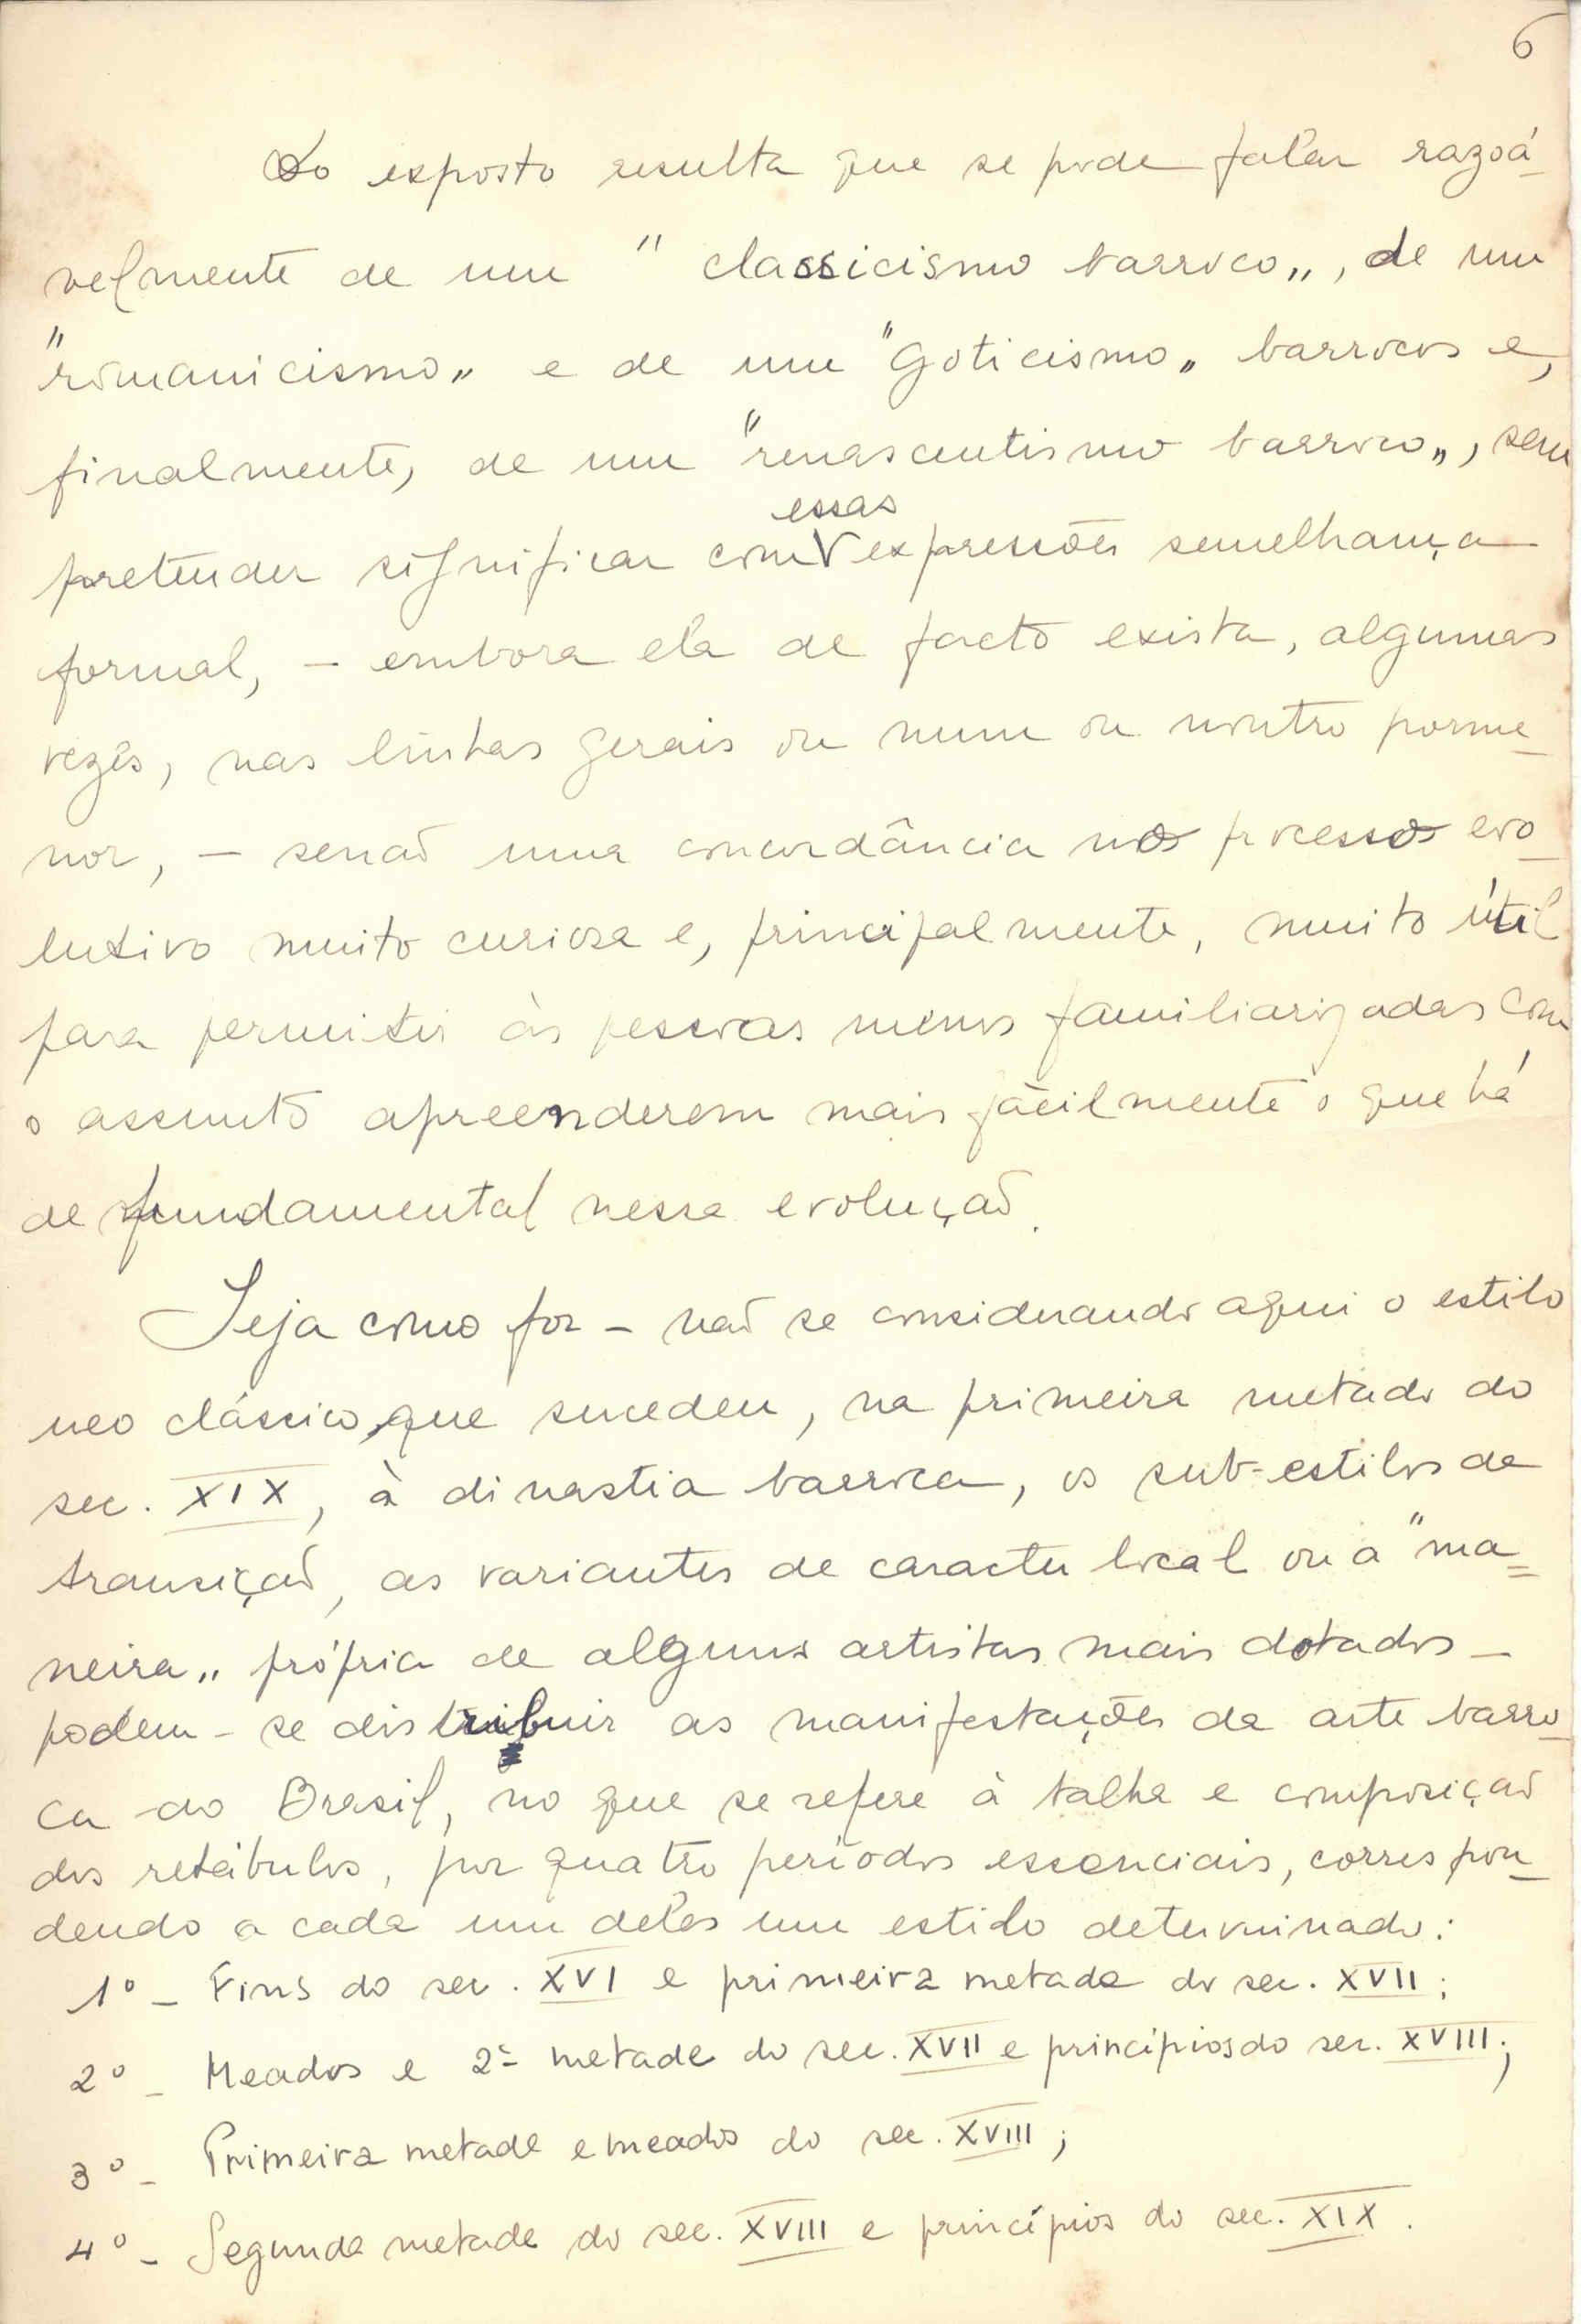 6
Do exposto resulta que se pode falar razoá-
velmente de um "classicismo barroco„, de um
"romanicismo„ e de um "goticismo„ barrocos e,
finalmente, de um "renascentismo barroco„, sem
essas
pretender significar com expressões semelhança
formal, — embora ela de facto exista, algumas
vezes, nas linhas gerais ou num ou noutro porme-
nor, — senão uma concordância no processo evo-
lutivo muito curiosa e, principalmente, muito útil
para permitir às pessoas menos familiarizadas com
o assunto apreenderem mais fàcilmente o que há
de fundamental nessa evolução.
Seja como for — não se considerando aqui o estilo
neo clássico, que sucedeu, na primeira metade do
sec. XIX, à dinastia barroca, os sub-estilos de
transição, as variantes de caracter local ou a "ma=
neira„ própria de alguns artistas mais dotados —
podem-se distribuir as manifestações da arte barro-
ca do Brasil, no que se refere à talha e composição
dos retábulos, por quatro períodos essenciais, correspon-
dendo a cada um deles um estilo determinado:
1º — Fins do sec. XVI e primeira metade do sec. XVII;
2º — Meados e 2ª metade do sec. XVII e princípios do sec. XVIII;
3º — Primeira metade e meados do sec. XVIII;
4º — Segunda metade do sec. XVIII e princípios do sec. XIX.